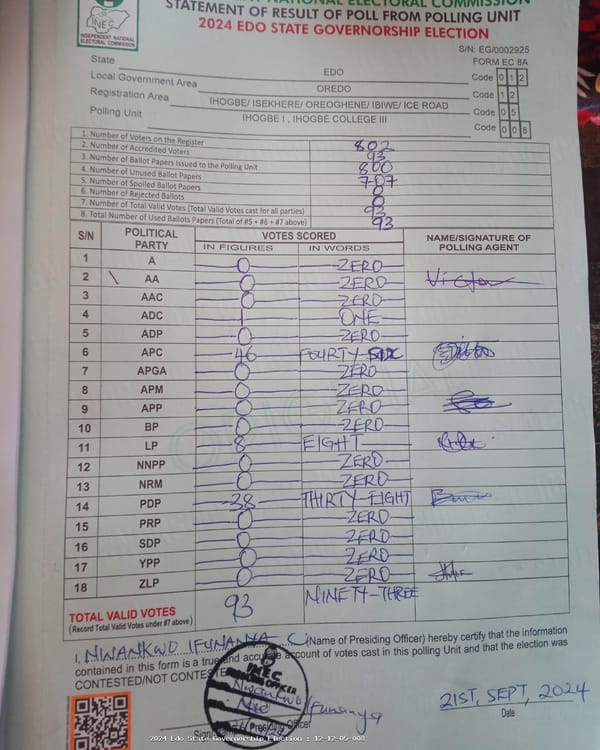 INDEPENDENT NATIONAL ELECTORAL COMMISSION
STATEMENT OF RESULT OF POLL FROM POLLING UNIT
2024 EDO STATE GOVERNORSHIP ELECTION
INEC
INDEPENDENT NATIONAL
ELECTORAL COMMISSION
S/N: EG/0002925
FORM EC 8A
State EDO Code 0 1 2
Local Government Area OREDO Code 1 2
Registration Area IHOGBE/ ISEKHERE/ OREOGHENE/ IBIWE/ ICE ROAD Code 0 5
Polling Unit IHOGBE I , IHOGBE COLLEGE III Code 0 0 8
1. Number of Voters on the Register 802
2. Number of Accredited Voters 93
3. Number of Ballot Papers Issued to the Polling Unit 800
4. Number of Unused Ballot Papers 707
5. Number of Spoiled Ballot Papers 0
6. Number of Rejected Ballots 0
7. Number of Total Valid Votes (Total Valid Votes cast for all parties) 93
8. Total Number of Used Ballots Papers (Total of #5 + #6 + #7 above) 93
S/N POLITICAL PARTY VOTES SCORED NAME/SIGNATURE OF POLLING AGENT
IN FIGURES IN WORDS
1 A 0 ZERO
2 AA 0 ZERO
3 AAC 0 ZERO
4 ADC 1 ONE
5 ADP 0 ZERO
6 APC 46 FOURTY-SIX
7 APGA 0 ZERO
8 APM 0 ZERO
9 APP 0 ZERO
10 BP 0 ZERO
11 LP 8 EIGHT
12 NNPP 0 ZERO
13 NRM 0 ZERO
14 PDP 38 THIRTY-EIGHT
15 PRP 0 ZERO
16 SDP 0 ZERO
17 YPP 0 ZERO
18 ZLP 0 ZERO
TOTAL VALID VOTES 93 NINETY-THREE
(Record Total Valid Votes under #7 above)
I, NWANKWO IFUNANYA C (Name of Presiding Officer) hereby certify that the information
contained in this form is a true and accurate account of votes cast in this polling Unit and that the election was
CONTESTED/NOT CONTESTED
INEC
Nwankwo Ifunanya
21ST, SEPT, 2024
Date
Presiding Officer
2024 Edo State Governorship Election : 12-12-05-008